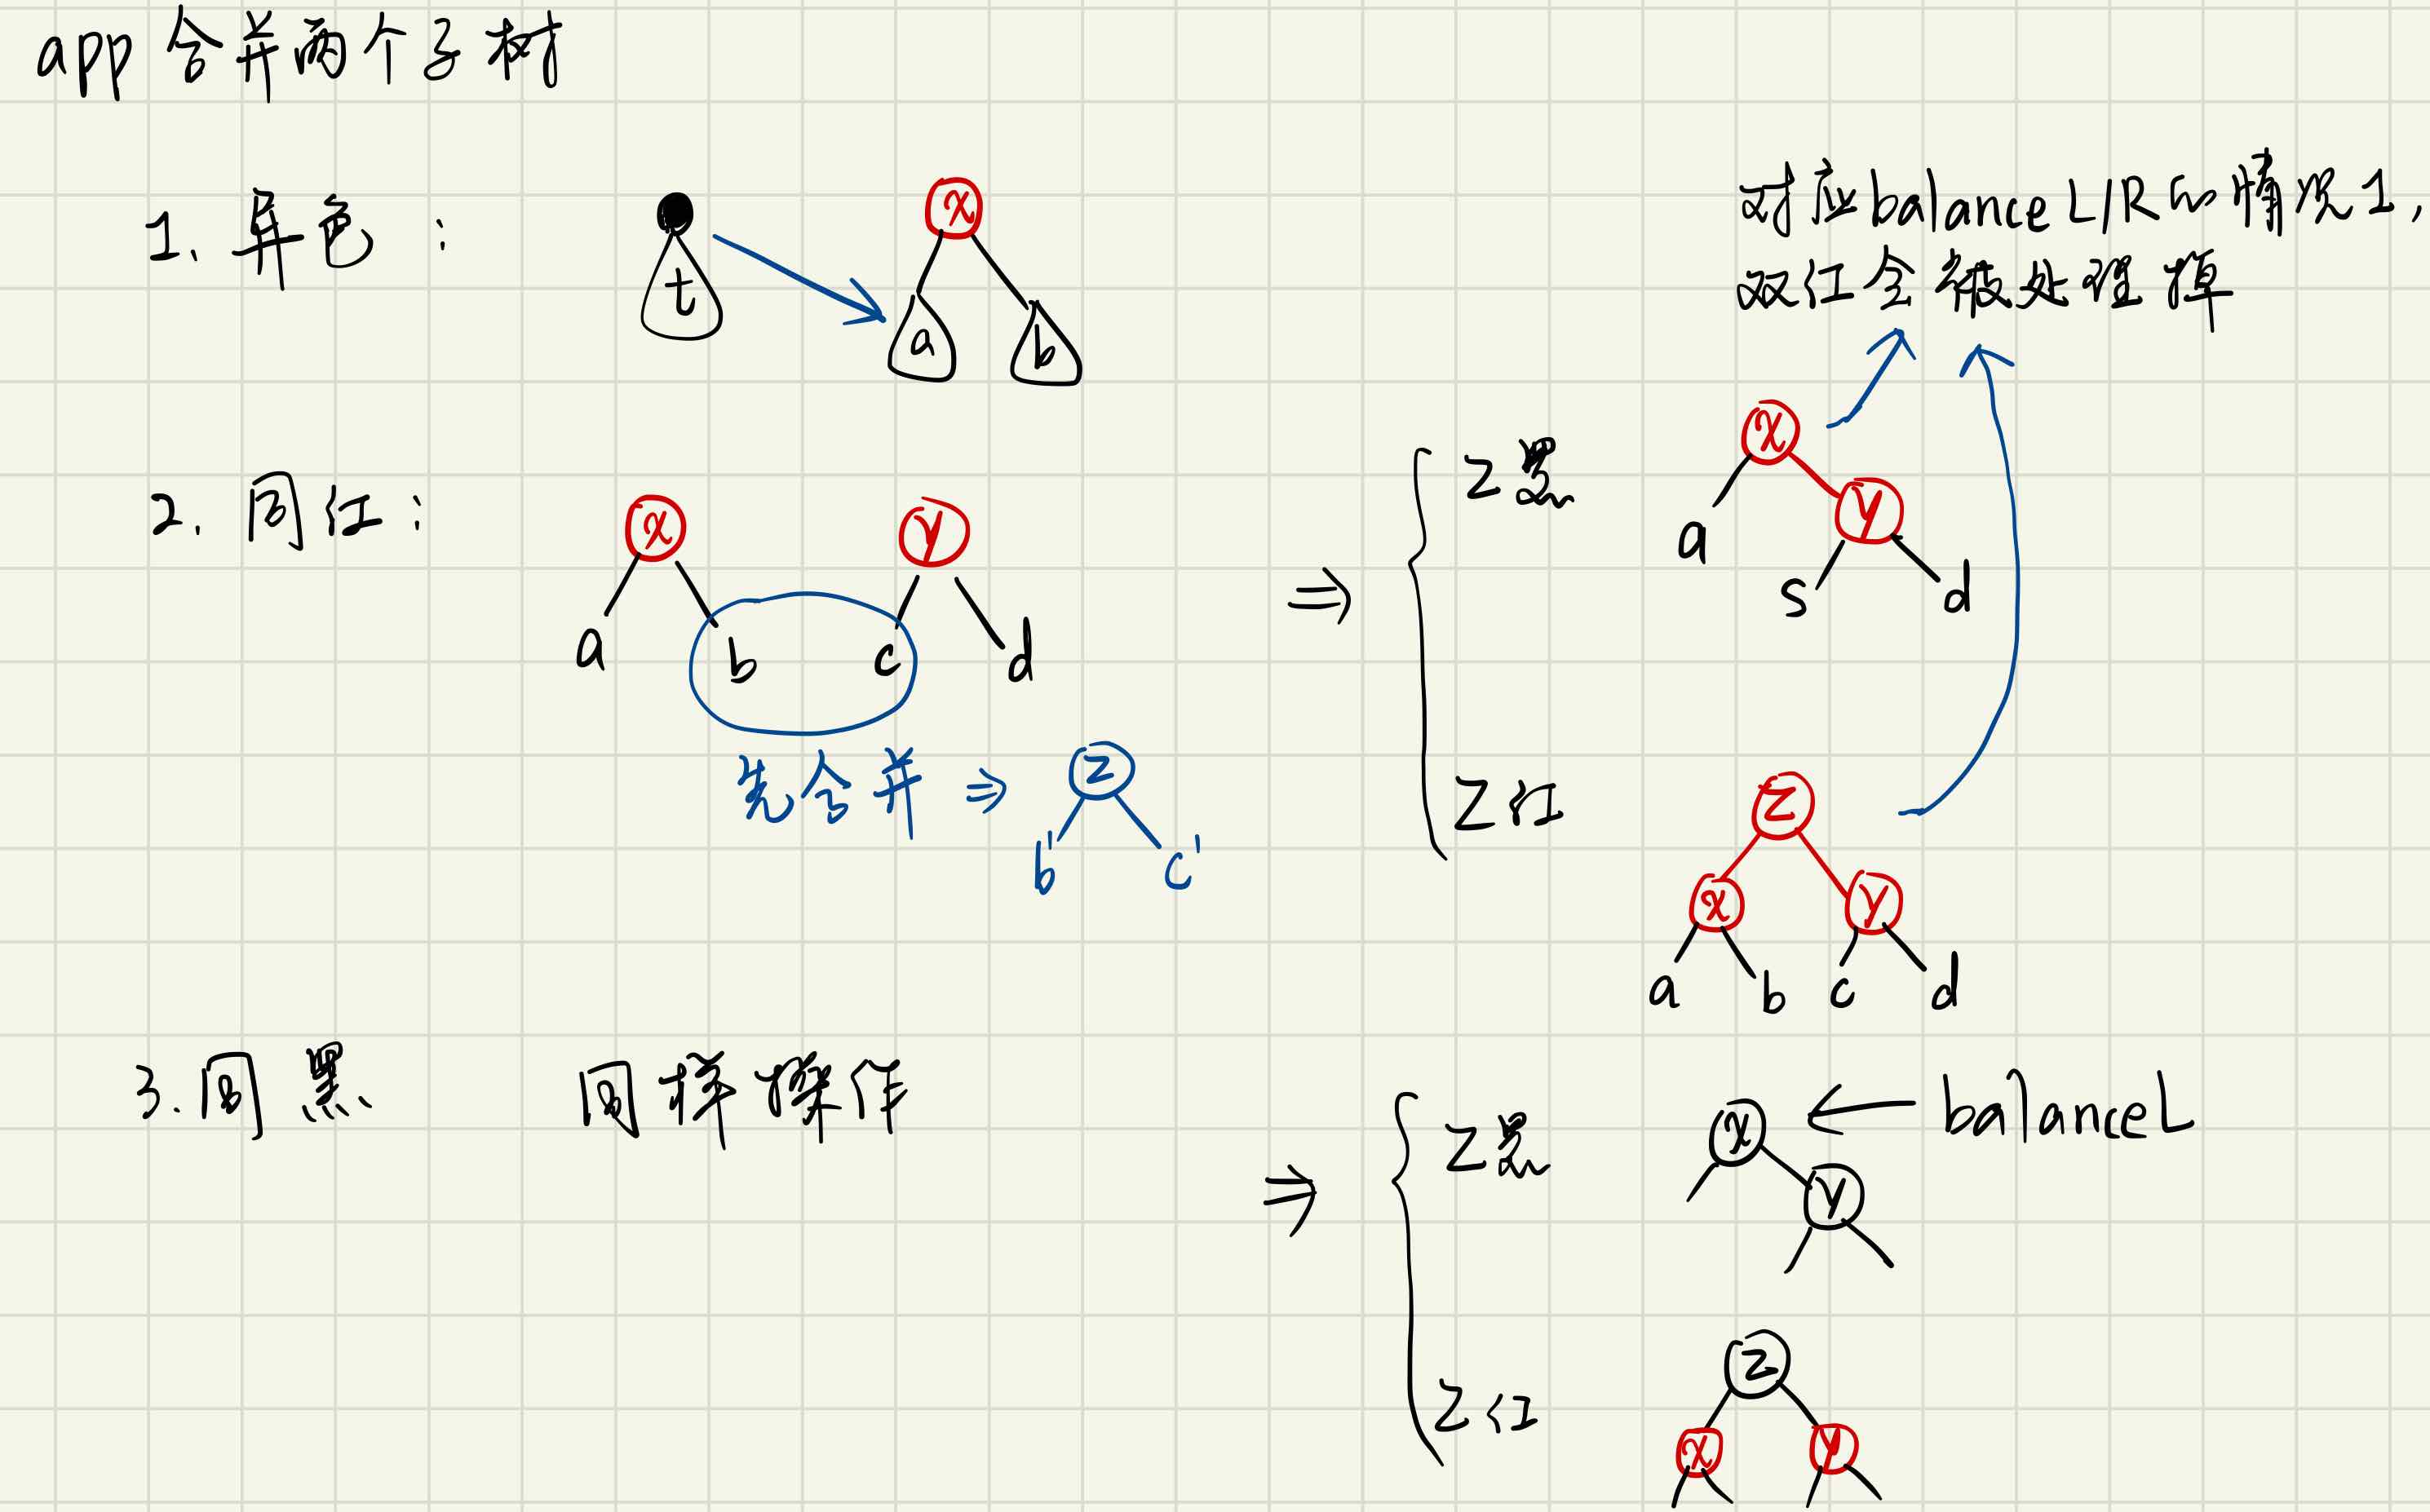 app 合并两个子树
1. 异色：
t
x
a
b
对应balanceL/R的情况1，
双红会被处理掉
2. 同红：
x
y
a
b
c
d
先合并 ⇒
z
b'
c'
⇒
z黑
x
a
y
s
d
z红
z
x
y
a
b
c
d
3. 同黑
同样操作
⇒
z黑
x
← balanceL
y
z红
z
x
y